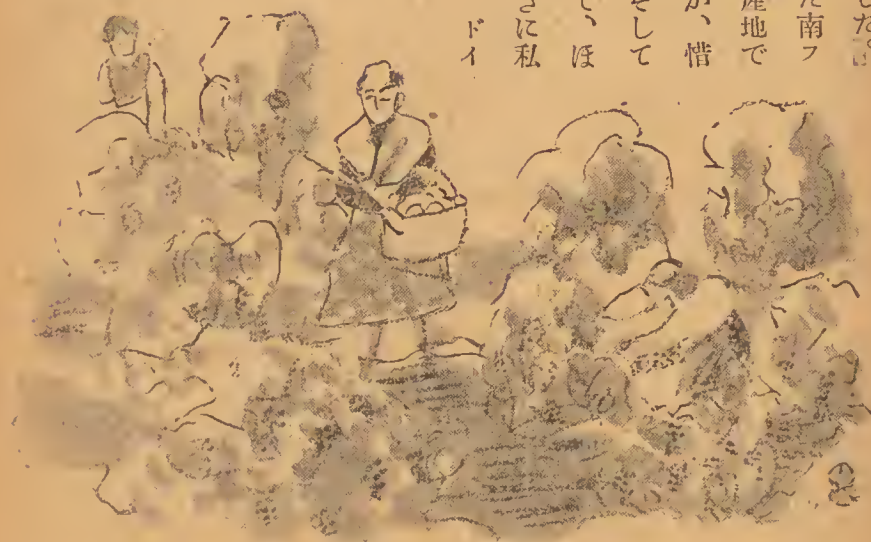 した。
た南フ
産地で
が、惜
そして
て、ほ
さに私
ドイ